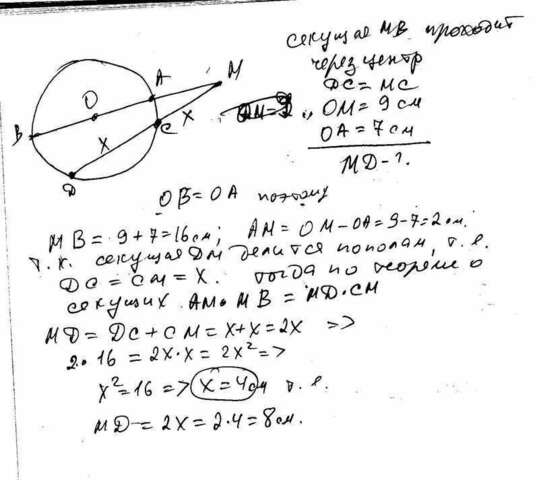 секущая MB проходит
через центр
DC = MC
OM = 9 см
OA = 7 см
MD - ?
M
A
O
B
X
X
C
D
OB = OA поэтому
MB = 9 + 7 = 16 см; AM = OM - OA = 9 - 7 = 2 см.
т.к. секущая DM делится пополам, т.е.
DC = CM = X. тогда по теореме о
секущих AM • MB = MD • CM
MD = DC + CM = X + X = 2X =>
2 • 16 = 2X • X = 2X² =>
X² = 16 => X = 4 см т.е.
MD = 2X = 2 • 4 = 8 см.